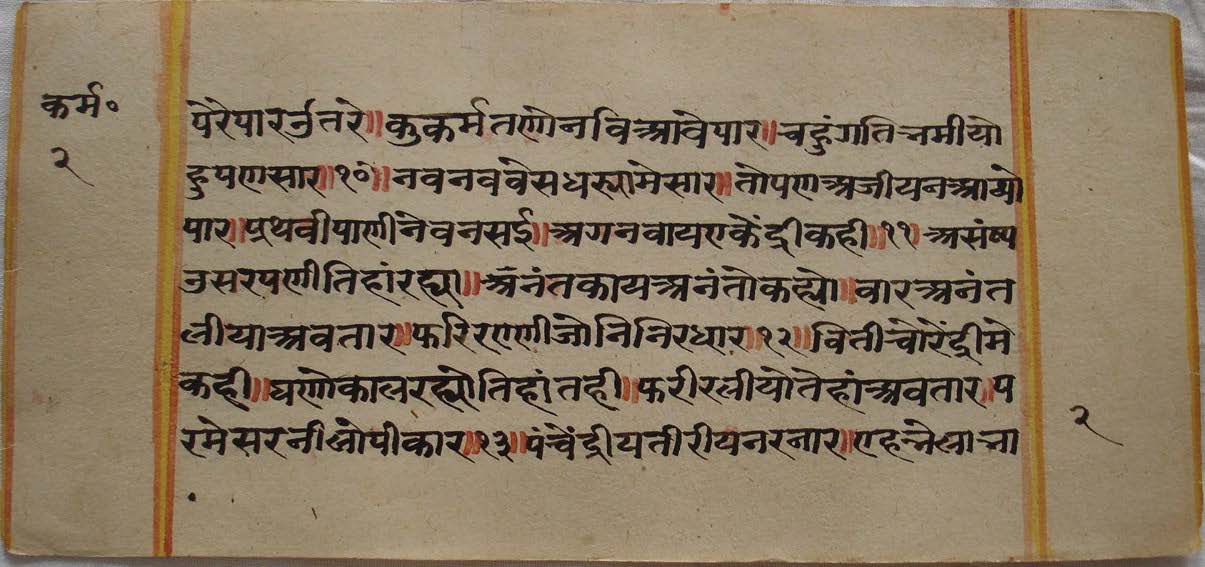 कर्म॰
२
पेरेपारर्उतरे॥कुकर्मतणोनविआवेपार॥चहुंगतिनमीयो
हुपणसार॥१०॥नवनववेसधस्यामेसार॥तोपणअजीयनआयो
पार॥प्रथवीपाणीनेवनसई॥अगनवायएकेंद्रीकही॥११असंष्प
उसरपणीतिहांरह्या॥अनंतकायअनंतोकह्यो॥वारअनंत
लीयाअवतार॥फरिरणणीजोनिनिरधार॥१२॥वितीचोरेंद्रीमे
कही॥घणोकालरह्योतिहांतही॥फरीरलीयोतेहांअवतार॥प
रमेसरनीलोपीकार॥१३॥पंचेंद्रीयतीरीयनरनार॥एह
२